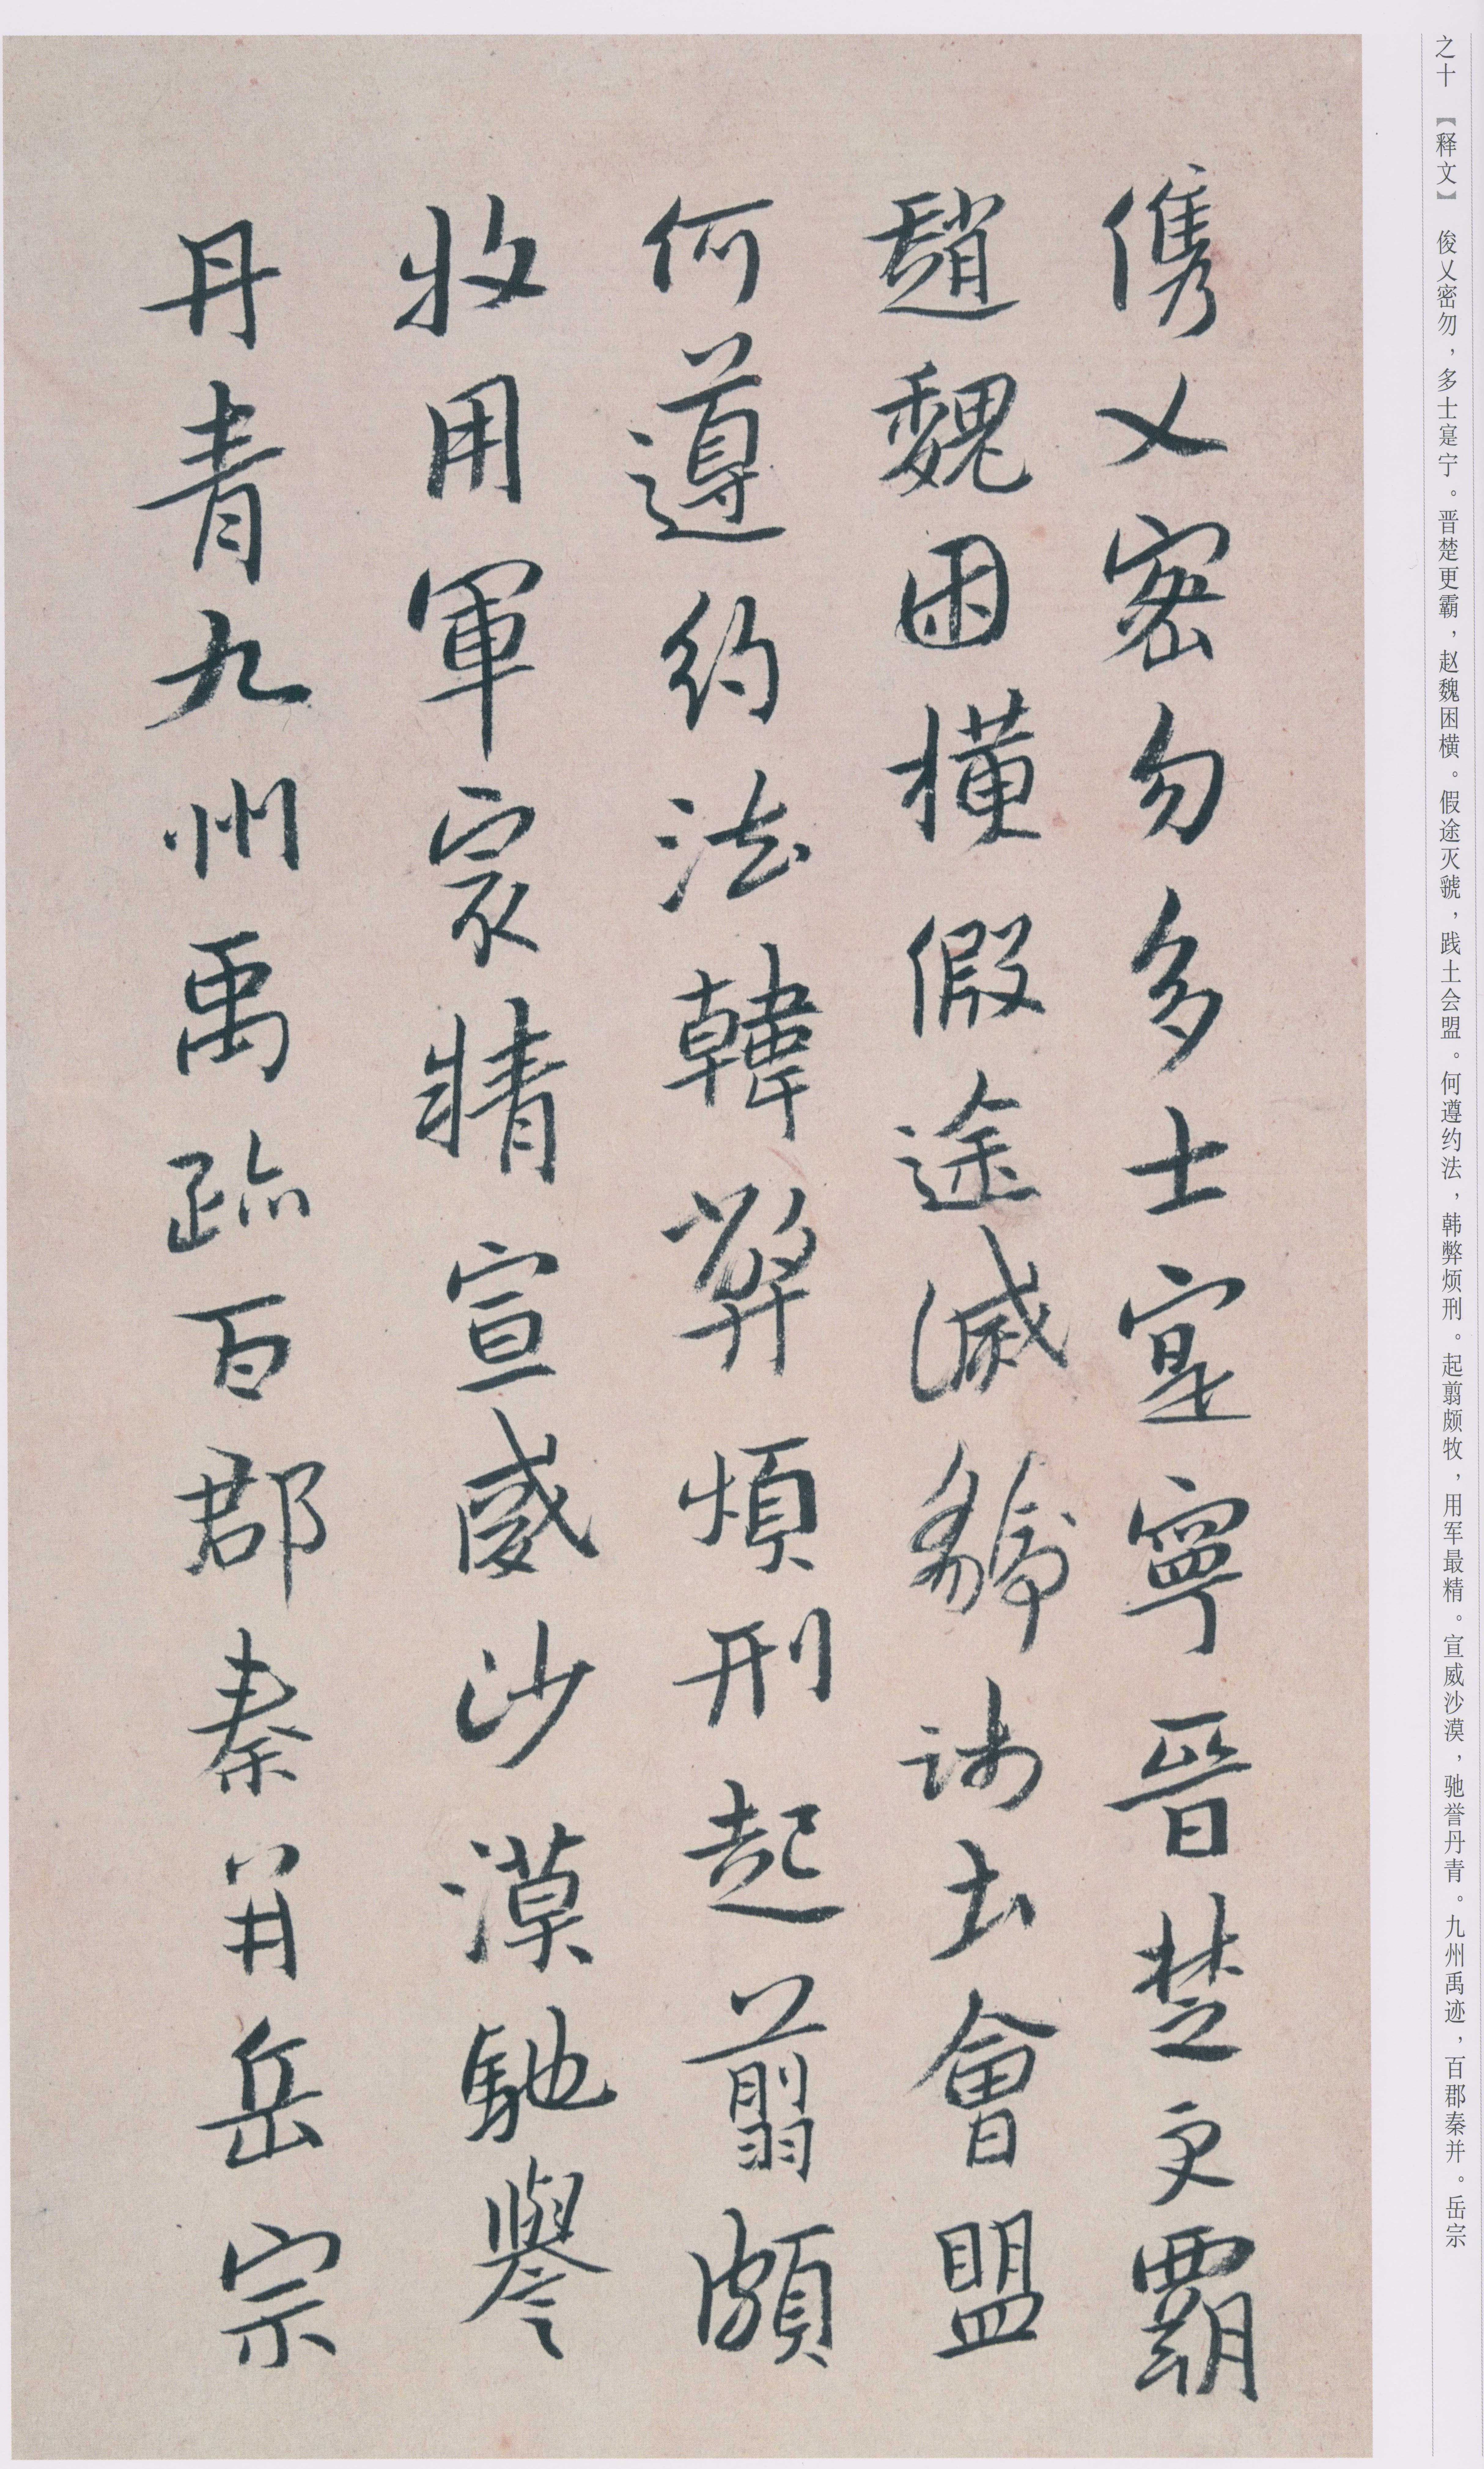 之十 【释文】 俊乂密勿，多士寔宁。晋楚更霸，赵魏困横。假途灭虢，践土会盟。何遵约法，韩弊烦刑。起翦颇牧，用军最精。宣威沙漠，驰誉丹青。九州禹迹，百郡秦并。岳宗
儁乂密勿多士寔寧晉楚更霸
趙魏困橫假途滅虢踐土會盟
何遵約法韓弊煩刑起翦頗
牧用軍冣精宣威沙漠馳譽
丹青九州禹跡百郡秦并岳宗